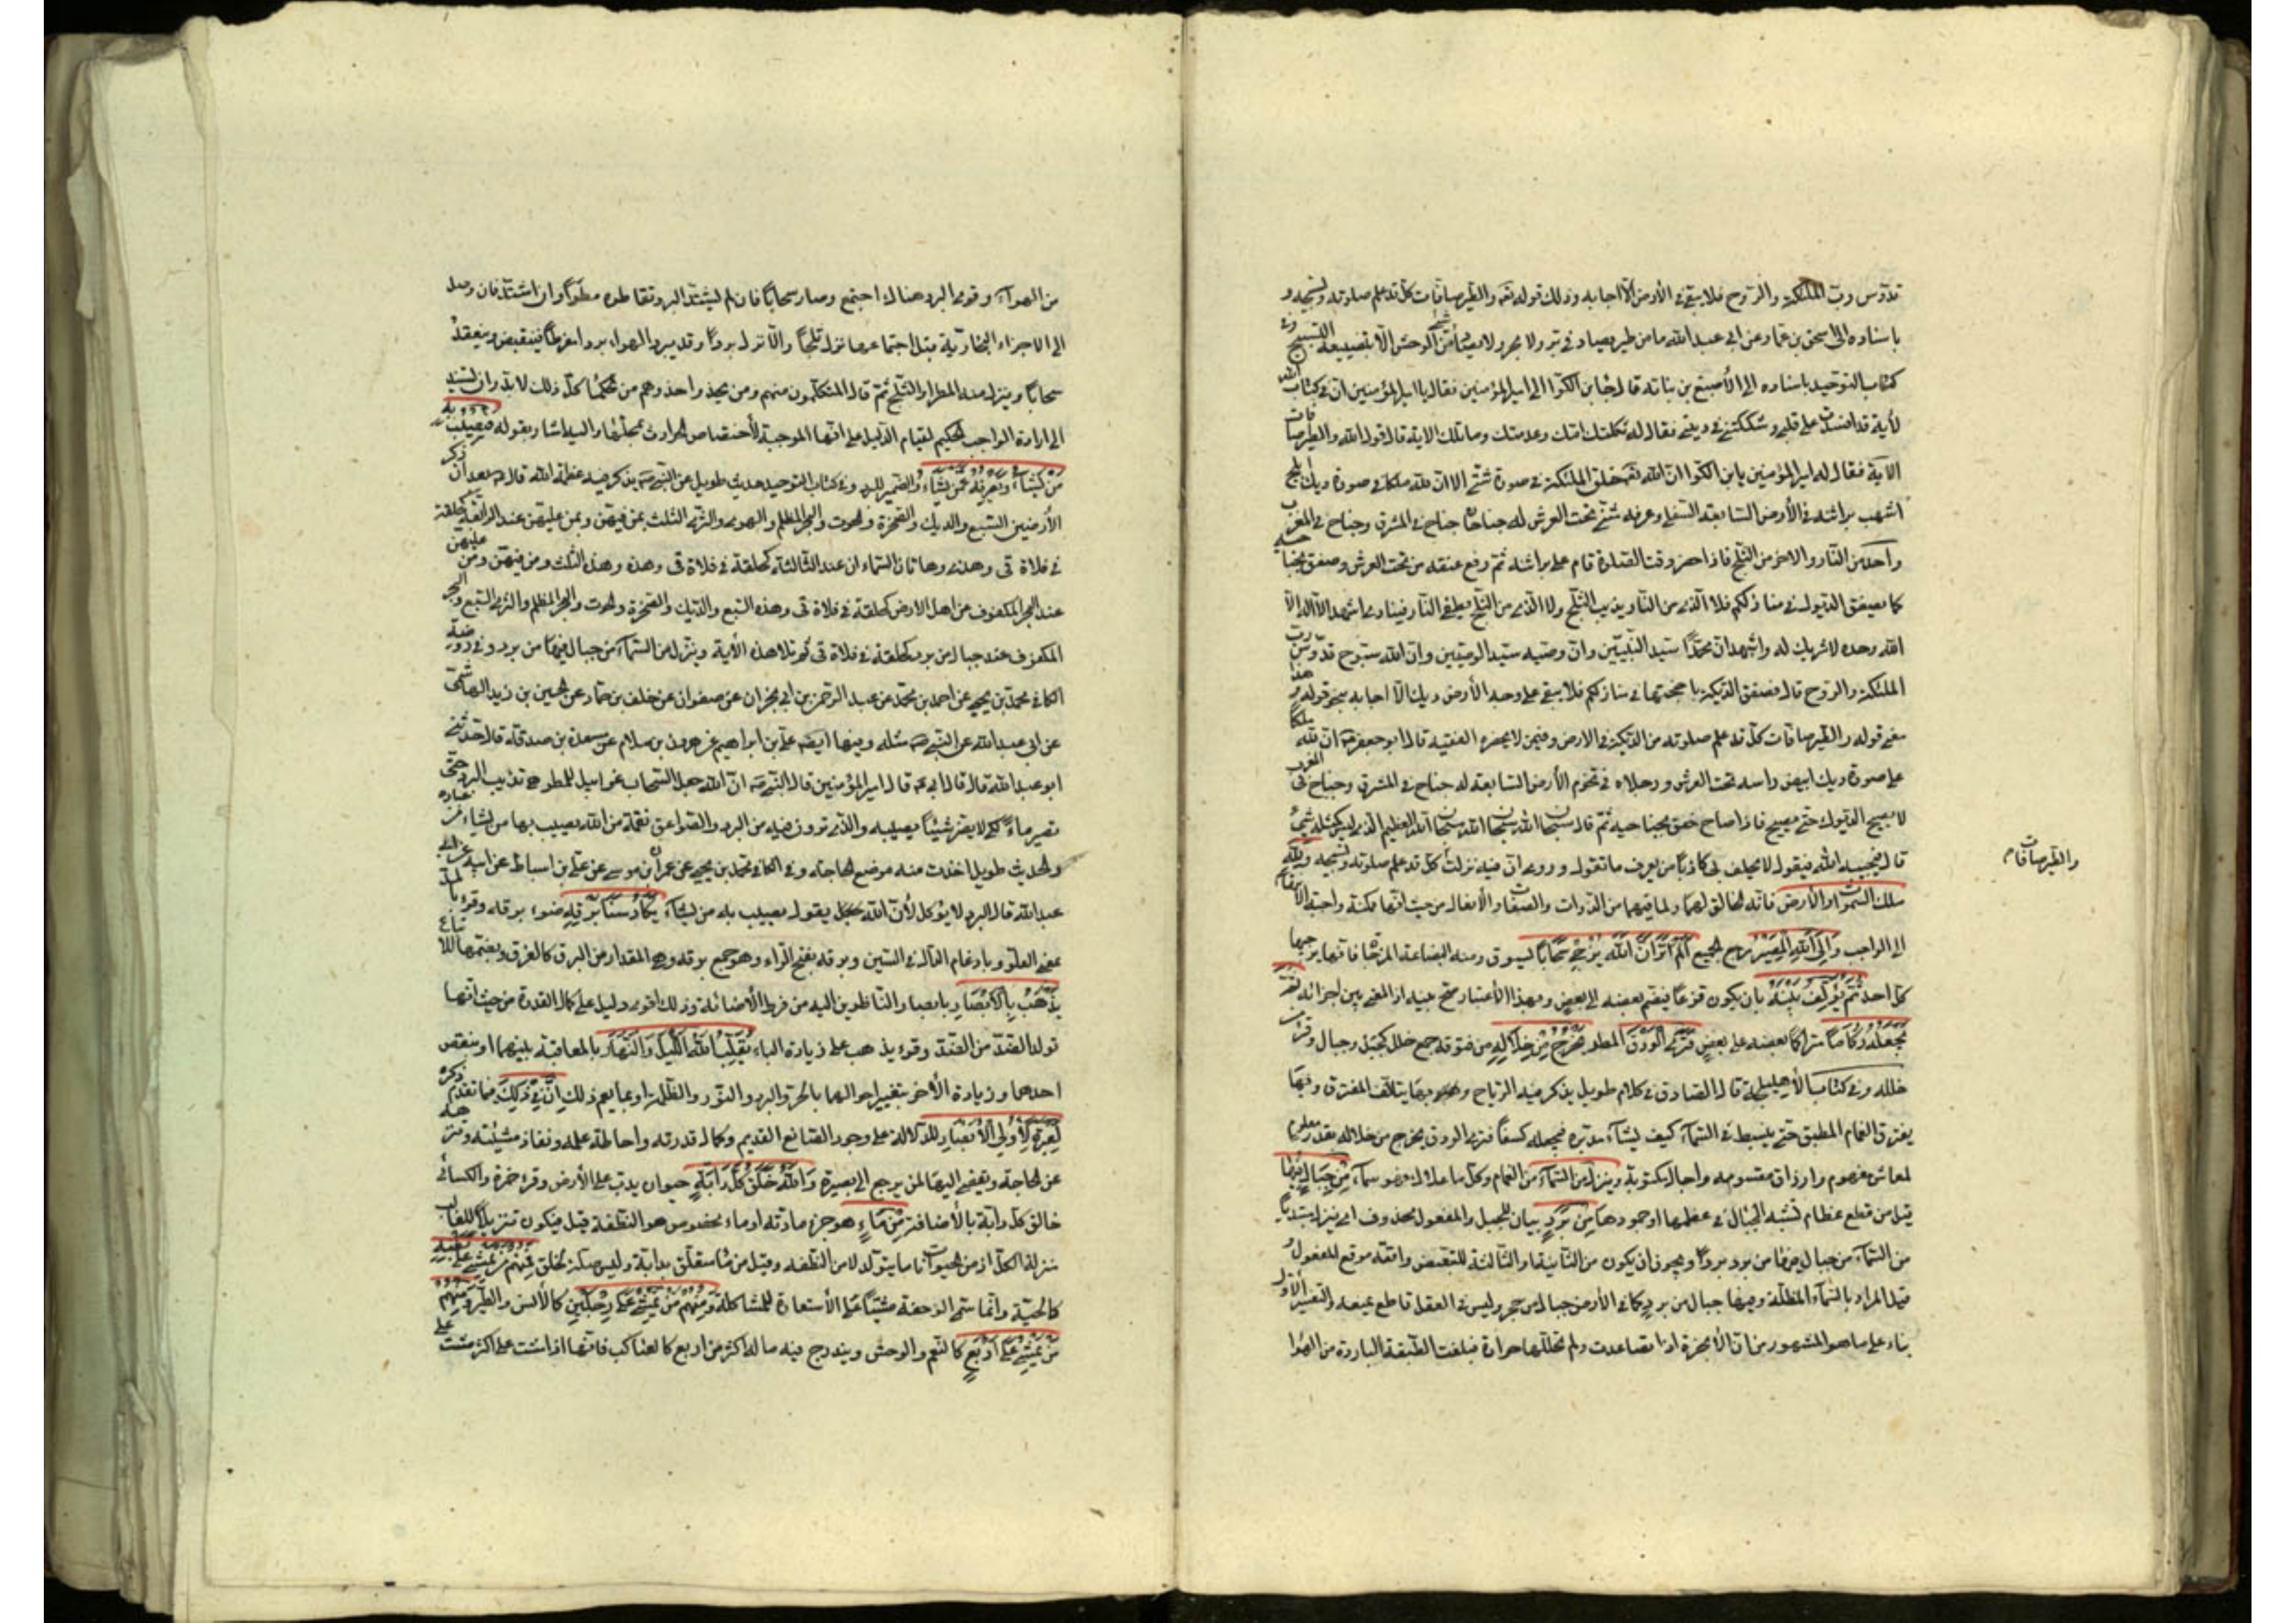 قدّوس ربّ الملئكة والرّوح فلا يبقى في الأرض الّا اجابه وذلك قوله تعه والطّير صافّات كلّ قد علم صلوته وتسبيحه و
باسناده الى اسحق بن عمّار عن ابي عبد الله ما من طير يصاد في برّ ولا بحر ولا يصاد شئ من الوحش الّا بتضييعه التسبيح وفي
كتاب التوحيد باسناده الى الأصبغ بن نباته قال جا ابن الكوّا الى امير المؤمنين فقال يا امير المؤمنين ان في كتاب الله
لأية قد افسدت على قلبي وشككتني في ديني فقال له ثكلتك امّك وعدمتك وما تلك الاية قال قول الله والطير صافات
الآية فقال له امير المؤمنين يابن الكوّا انّ الله تعه خلق الملئكة في صورة شتّى الا انّ لله ملكا في صورة ديك ابحّ
اشهب براثنه في الأرض السّابعة السّفلى وعرفه مثنى تحت العرش له جناحان جناح في المشرق وجناح في المغرب
واحد من النّار والاخر من الثّلج فاذا حضر وقت الصّلوة قام على براثنه ثمّ رفع عنقه من تحت العرش وصفق بجناحيه
كما يصفق الديوك في منازلكم فلا الّذي من النّار يذيب الثّلج ولا الّذي من الثّلج يطفئ النّار فينادى اشهد الّا اله الّا
الله وحده لا شريك له واشهد انّ محمّدًا سيّد النّبيّين وانّ وصيّه سيّد الوصيّين وانّ الله سبّوح قدّوس ربّ
الملئكة والرّوح قال فتصفق الدّيكة باجنحتها في منازلكم فلا يبقى على وجه الأرض ديك الّا اجابه بنحو قوله وهذا
معنى قوله والطّير صافّات كلّ قد علم صلوته من الدّيكة في الارض وفيمن لا يحضره الفقيه قال ابو جعفر انّ لله ملكًا
على صورة ديك ابيض راسه تحت العرش ورجلاه في تخوم الأرض السّابعة له جناح في المشرق وجناح في المغرب
لا يصيح الديوك حتّى يصيح فاذا صاح خفق بجناحيه ثمّ قال سبحان الله سبحان الله سبحان الله العظيم الّذي ليس كمثله شئ
قال فيجيبه الله فيقول لا يحلف بي كاذبا من يعرف ما تقول وروي انّ فيه نزلت كلّ قد علم صلوته وتسبيحه ولله
والطّير صافّات
ملك السّموات والأرض فانّه الخالق لهما ولما فيهما من الذّوات والصفات والأفعال من حيث انّها ممكنة واجبة الانتهاء
الى الواجب وَإلَى اللهِ المَصِيرُ مرجع الجميع اَلَمْ تَرَ اَنَّ اللهَ يُزْجِي سَحَابًا يسوق ومنه البضاعة المزجاة فانّها يزجيها
كلّ احد ثُمَّ يُؤَلِّفُ بَيْنَهُ بان يكون قزعا فيضمّ بعضه الى بعض وبهذا الأعتبار صحّ بينه اذ المعنى بين اجزائه ثمّ
يَجْعَلُهُ رُكَامًا متراكما بعضه على بعض فَتَرَى الْوَدْقَ المطر يَخْرُجُ مِنْ خِلَالِهِ من فتوقه جمع خلل كجبل وجبال وقرئ من
خلله وفي كتاب الأهليلجة قال الصّادق في كلام طويل يذكر فيه الرّياح وبها يتالّف المفترق وبها
يفترق الغمام المطبق حتّى ينبسط في السّمآء كيف يشآء مدبّره فيجعله كسفًا فترى الودق يخرج من خلاله بقدر معلوم
لمعاش مفهوم وارزاق مقسومه واجال مكتوبة وينزل من السّمآء من الغمام وكلّ ما علاك فهو سمآء مِن جِبَالٍ فيها
قيل من قطع عظام تشبه الجبال في عظمها او جمودها مِنْ بَرَدٍ بيان للجبل والمفعول محذوف اى ينزل مبتديا
من السّمآء من جبال فيها من برد بردًا ويجوز ان يكون من الثّانية او الثّالثة للتّبعيض واقعة موقع المفعول و
قيل المراد بالسّمآء المظلّة وفيها جبال من برد كما في الأرض جبال من حجر وليس في العقل قاطع يمنعه والتفسير الأوّل
بناء على ما هو المشهور من انّ الأبخرة اذا تصاعدت ولم تحلّلها حرارة فبلغت الطّبقة الباردة من الهوا
من الهوآء وقوى البرد هناك اجتمع وصار سحابًا فان لم يشتدّ البرد تقاطر مطرًا وان اشتدّ فان وصل
الى الاجزاء البخاريّة قبل اجتماعها نزل ثلجًا والّا نزل بردًا وقد يبرد الهواء بردا مفرطًا فينقبض وينعقد
سحابًا وينزل منه المطر او الثّلج ثمّ قال المتكلّمون منهم ومن يحذو احذوهم من حكمائنا كلّ ذلك لا بدّ وان يستند
الى ارادة الواجب الحكيم لقيام الدّليل على انّها الموجبة لأختصاص الحوادث بمحالّها واليه اشار بقوله فَيُصِيبُ بِهِ
مَنْ يَشَاءُ وَيَصْرِفُهُ عَنْ مَنْ يَشَاءُ والضّمير للبرد وفي كتاب التوحيد حديث طويل عن النّبي يذكر فيه عظمة الله قال بعد ان ذكر
الأرضين السّبع والدّيك والصّخرة والحوت والبحر المظلم والهوى والثّرى الثّلث بمن فيهنّ وبمن عليهنّ عند الرّابعة كحلقة
في فلاة قى وهذه وهاتان السّماءان عند الثّالثة كحلقة في فلاة قى وهذه وهذه الثّلث ومن فيهنّ ومن عليهنّ
عند البحر المكفوف عن اهل الارض كحلقة في فلاة قى وهذه السّبع والدّيك والصّخرة والحوت والبحر المظلم والثّرى السّبع والبحر
المكفوف عند جبال من برد كحلقة في فلاة قى ثم تلا هذه الأية وينزل من السّمآء من جبال فيها من برد وفي روضة
الكافي محمّد بن يحيى عن احمد بن محمّد عن عبد الرّحمن بن ابي نجران عن صفوان عن خلف بن حمّاد عن الحسين بن زيد الهاشمى
عن ابي عبد الله عن النّبي مثله وفيها ايضه علي بن ابراهيم عن هرون بن مسلام عن مسعدة بن صدقة قال حدّثني
ابو عبد الله قال قال ابي قال امير المؤمنين قال النّبي انّ الله جعل السّحاب غرابيل للمطر هى تذيب البرد حتّى
تصير ماءً لكى لا يضرّ شيئًا يصيبه والّذي ترون فيه من البرد والصّواعق نقمة من الله يصيب بها من يشاء من عباده
والحديث طويل اخذت منه موضع الحاجة وفي الكافي محمّد بن يحيى عن عمران بن موسى عن علي بن اسباط عن ابيه عن ابي
عبد الله قال البرد لا يؤكل لأنّ الله عجل يقول يصيب به من يشآء يَكَادُ سَنَا بَرْقِهِ ضوء برقه وقرئ بالمدّ
بمعنى العلوّ وبادغام الدّال في السّين وبرقه بفتح الرّاء وهو جمع برقه وهى المقدار من البرق كالغرق وبضمّها للاتباع
يَذْهَبُ بِالأَبْصَارِ بابصار النّاظرين اليه من فرط الأضائة وذلك اقوى دليل على كمال القدرة من حيث انّها
تولد الضدّ من الضّدّ وقرئ يذهب على زيادة الباء يُقَلِّبُ اللهُ اللَّيْلَ وَالنَّهَارَ بالمعاقبة بينهما او بنقص
احدهما وزيادة الأخر بتغيير احوالهما بالحرّ والبرد والنّور والظّلمة او بما يعم ذلك إنَّ فِي ذَلِكَ فيما تقدّم ذكره
لَعِبْرَةً لِأُولِي الأَبْصَارِ للدّلالة على وجود الصّانع القديم وكمال قدرته واحاطة علمه ونفاذ مشيّته وتنزهه
عن الحاجة ويفضى اليها لمن يرجع الى بصيرة وَاللهُ خَلَقَ كُلَّ دَابَّةٍ حيوان يدبّ على الأرض وقرء حمزة والكسائي
خالق كلّ دابّة بالأضافة مِنْ مَاءٍ هو جزء مادّته او ماء مخصوص هو النّطفة قيل فيكون تنزيلا للغالب
منزلة الكلّ اذ من الحيوانات ما يتولّد لا من النّطفه وقيل من مّا متعلّق بدابّة وليس صلة لخلق فَمِنْهُمْ مَنْ يَمْشِي عَلَى بَطْنِهِ
كالحيّة وانّما سمّى الزحفة مشيًا على الأستعارة للمشاكلة وَمِنْهُمْ مَنْ يَمْشِي عَلَى رِجْلَيْنِ كالأنس والطّير وَمِنْهُمْ
مَنْ يَمْشِي عَلَى أَرْبَعٍ كالنّعم والوحش ويندرج فيه ما له اكثر من اربع كالعناكب فانّها اذا مشت على اكثر مشت على